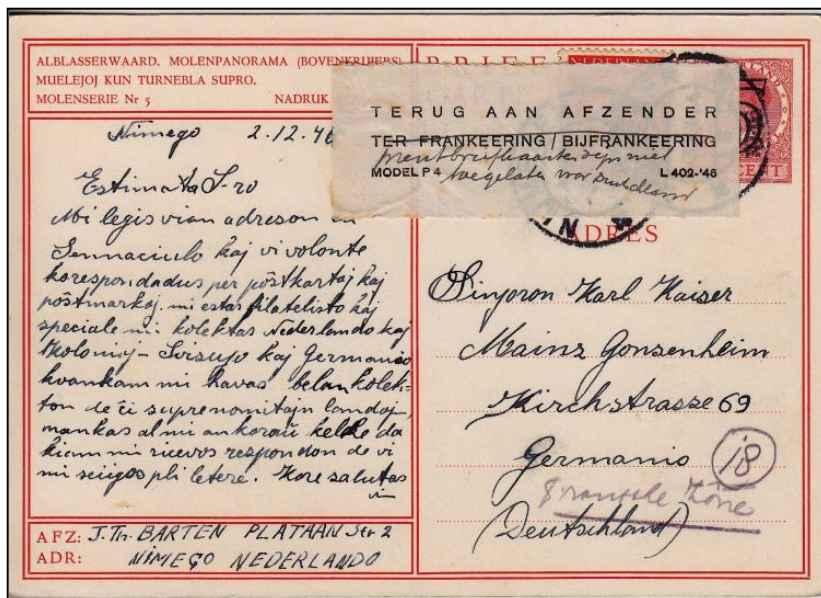 ALBLASSERWAARD. MOLENPANORAMA (BOVENKRUIERS)
MUELEJOJ KUN TURNEBLA SUPRO.
MOLENSERIE Nr 5 NADRUK
BRIEF
NEDERLAND
CENT
TERUG AAN AFZENDER
TER FRANKEERING / BIJFRANKEERING
prentbriefkaarten zijn niet
MODEL P 4 L 402-'46
toegelaten voor Duitschland
Nimego 2.12.46
Estimata S-ro
Mi legis vian adreson en
Sennaciulo kaj vi volonte
korespondadus per pôstkartoj kaj
pôstmarkoj. mi estas filatelisto kaj
speciale mi kolektas Nederlando kaj
Kolonioj - Svisujo kaj Germanio
kvankam mi havas belan kolek-
ton de ĉi suprenomitajn landoj,
mankas al mi ankoraŭ kelke da
kiam mi ricevos respondon de vi
mi sciigos pli letere. Kore salutas
vin
AFZ: J. Th. BARTEN PLATAAN Str 2
ADR: NIMEGO NEDERLANDO
ADRES
Sinjoron Karl Kaiser
Mainz Gonsenheim
Kirchstrasse 69
Germanio
18
Fransche Zône
(Deutschland)